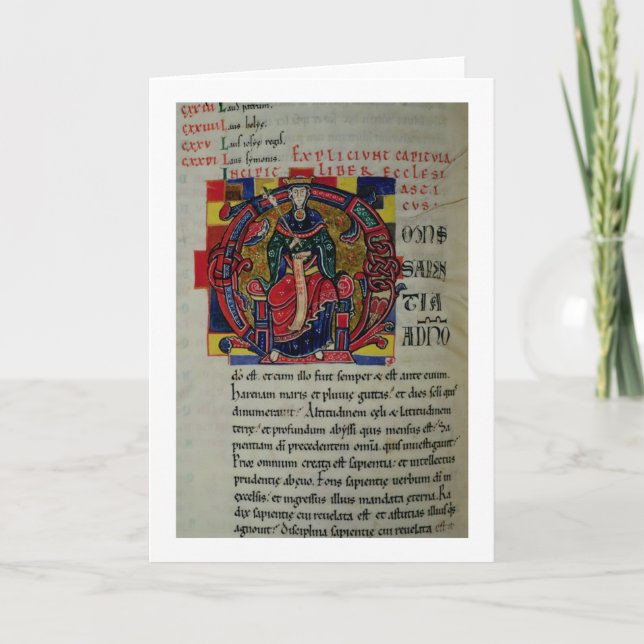 CXXIII Laus patrum.
CXXIIII Laus helye.
CXXV Laus iosye regis.
CXXVI Laus symonis.
EXPLICIUNT CAPITULA
INCIPIT LIBER ECCLESI
ASTI
CUS:
OMNIS
SAPIEN
TIA
A DNO
dō est. et cum illo fuit semper & est ante euum.
Harenam maris et pluuie guttas. et dies scli quis
dinumerauit? Altitudinem celi & latitudinem
terre. et profundum abyssi quis mensus est? Sa
pientiam di precedentem omnia. quis inuestigauit?
Prior omnium creata est sapientia. et intellectus
prudentie ab euo. Fons sapientie uerbum di in
excelsis. et ingressus illius mandata eterna. Ra
dix sapientie cui reuelata est. et astutias illius quis
agnouit? Disciplina sapientie cui reuelata est